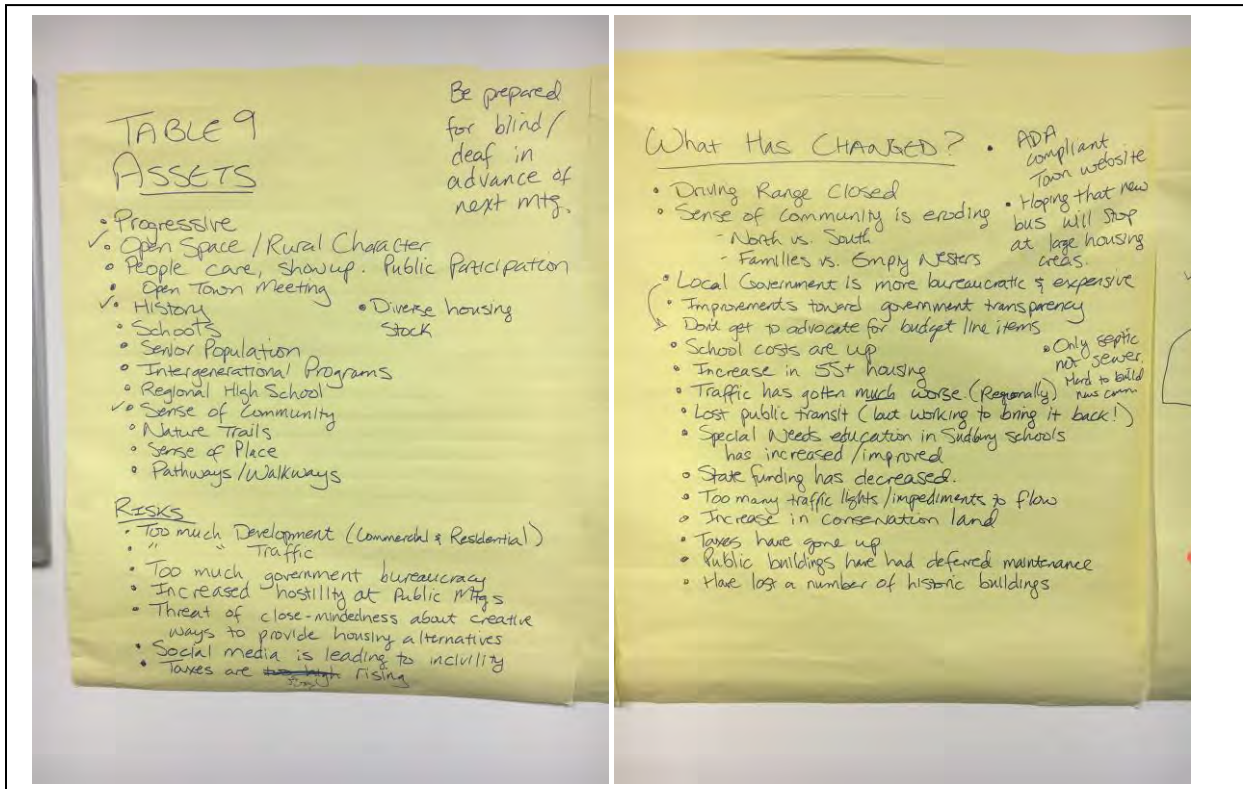 TABLE 9
ASSETS
Be prepared
for blind/
deaf in
advance of
next mtg.
• Progressive
✓• Open Space / Rural Character
• People care, show up. Public Participation
• Open Town Meeting
✓• History
• Diverse housing
stock
• Schools
• Senior Population
• Intergenerational Programs
• Regional High School
✓• Sense of Community
• Nature Trails
• Sense of Place
• Pathways/Walkways
RISKS
• Too much Development (Commercial & Residential)
• " " Traffic
• Too much government bureaucracy
• Increased hostility at Public Mtgs
• Threat of close-mindedness about creative
ways to provide housing alternatives
• Social media is leading to incivility
• Taxes are too high rising
What Has CHANGED?
• ADA
compliant
Town website
• Hoping that new
bus will stop
at large housing
areas.
• Driving Range Closed
• Sense of Community is eroding
- North vs. South
- Families vs. Empty Nesters
• Local Government is more bureaucratic & expensive
• Improvements toward government transparency
Don't get to advocate for budget line items
• School costs are up
• Increase in 55+ housing
• Only septic
not sewer.
Hard to build
• Traffic has gotten much worse. (Regionally)
• Lost public transit (but working to bring it back!)
• Special Needs education in Sudbury schools
has increased/improved
• State funding has decreased.
• Too many traffic lights/impediments to flow
• Increase in conservation land
• Taxes have gone up
• Public buildings have had deferred maintenance
• Have lost a number of historic buildings